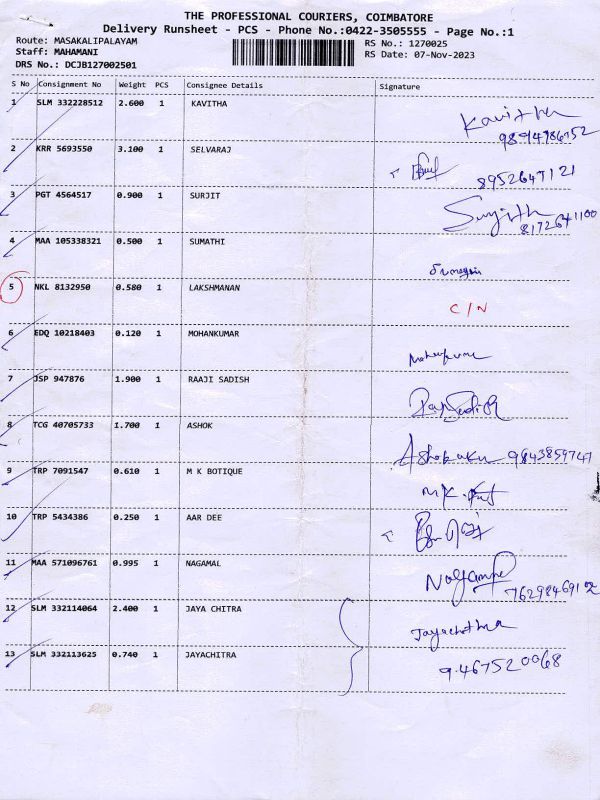 THE PROFESSIONAL COURIERS, COIMBATORE
Delivery Runsheet - PCS - Phone No.:0422-3505555 - Page No.:1
Route: MASAKALIPALAYAM RS No.: 1270025
Staff: MAHAMANI RS Date: 07-Nov-2023
DRS No.: DCJB127002501
S No Consignment No Weight PCS Consignee Details Signature
1 SLM 332228512 2.600 1 KAVITHA Kavitha
2 KRR 5693550 3.100 1 SELVARAJ 8952647121
3 PGT 4564517 0.900 1 SURJIT Surjith 8172641100
4 MAA 105338321 0.500 1 SUMATHI
5 NKL 8132950 0.580 1 LAKSHMANAN C/N
6 EDQ 10218403 0.120 1 MOHANKUMAR
7 JSP 947876 1.900 1 RAAJI SADISH
8 TCG 40705733 1.700 1 ASHOK Ashokaku 9843859747
9 TRP 7091547 0.610 1 M K BOTIQUE M.K.
10 TRP 5434386 0.250 1 AAR DEE
11 MAA 571096761 0.995 1 NAGAMAL
12 SLM 332114064 2.400 1 JAYA CHITRA
13 SLM 332113625 0.740 1 JAYACHITRA 9467520068